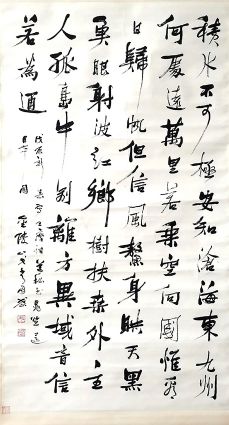 積水不可極安知滄海東九州
何處遠萬里若乘空向國惟看
日歸帆但信風鰲身映天黑
魚眼射波紅鄉樹扶桑外主
人孤島中別離方異域音信
若為通
戊辰
日本國